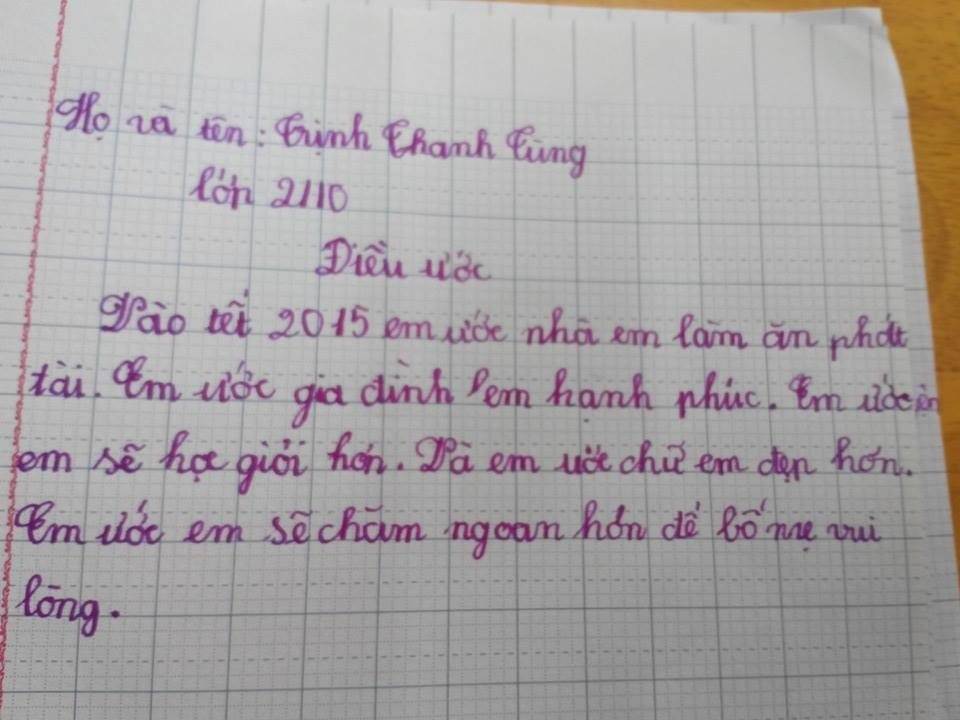 Họ và tên: Trịnh Thanh Tùng
lớp 2A10
Điều ước
Vào tết 2015 em ước nhà em làm ăn phát
tài. Em ước gia đình em hạnh phúc. Em ước
em sẽ học giỏi hơn. Và em ước chữ em đẹp hơn.
Em ước em sẽ chăm ngoan hơn để bố mẹ vui
lòng.